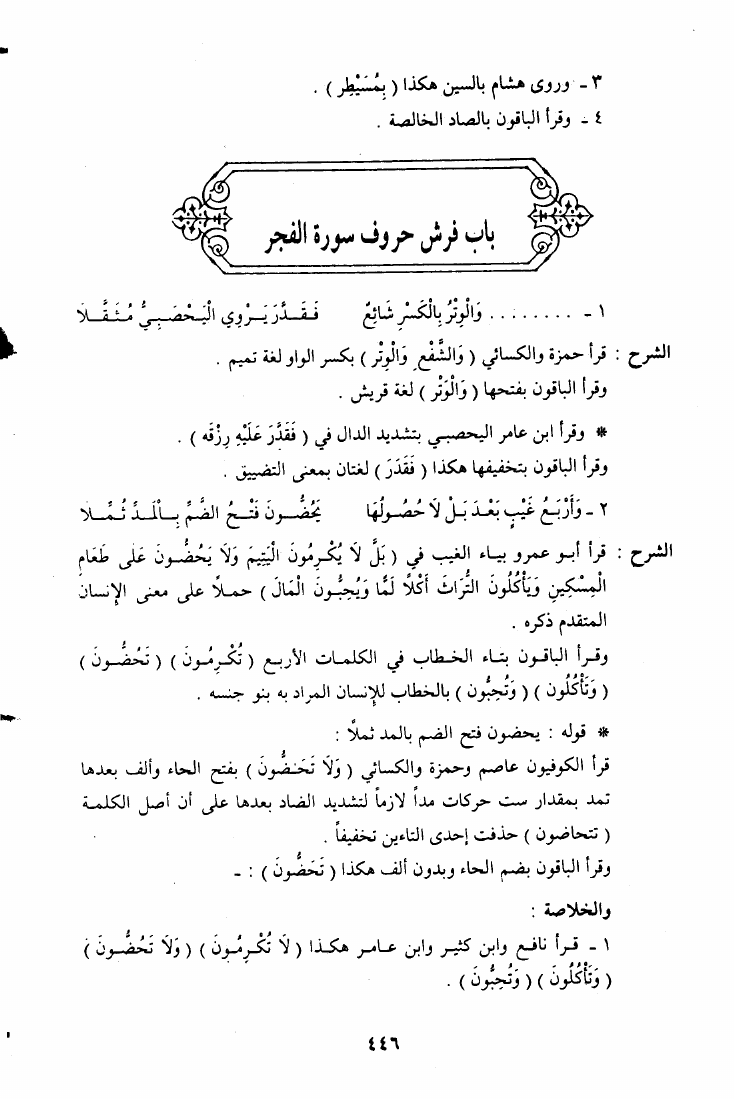 ٣ - وروى هشام بالسين هكذا ( بِمُسَيْطِر ) .
٤ - وقرأ الباقون بالصاد الخالصة .
باب فرش حروف سورة الفجر
١ - ......... وَالْوِتْرُ بِالْكَسْرِ شَائِعٌ فَـقَـدَّرَ يَـرْوِي الْيَـحْصَـبِـيُّ مُـثَـقَّـلَا
الشرح : قرأ حمزة والكسائي ( وَالشَّفْعِ وَالْوِتْر ) بكسر الواو لغة تميم .
وقرأ الباقون بفتحها ( وَالْوَتْر ) لغة قريش .
* وقرأ ابن عامر اليحصبي بتشديد الدال في ( فَقَدَّرَ عَلَيْهِ رِزْقَه ) .
وقرأ الباقون بتخفيفها هكذا ( فَقَدَرَ ) لغتان بمعنى التضييق .
٢ - وَأَرْبَـعُ غَيْبٍ بَعْـدَ بَـلْ لَا حُصُـولُهَا يَحُضُّـونَ فَتْـحُ الضَّـمِّ بِـالْمَـدِّ ثُـمِّـلَا
الشرح : قرأ أبـو عمرو بيـاء الغيب في ( بَل لَا يُكْـرِمُونَ الْيَتِيمَ وَلَا يَحُضُّـونَ عَلَى طَعَامِ
الْمِسْكِينِ وَيَأْكُلُونَ التُّرَاثَ أَكْلًا لَمًّا وَيُحِبُّـونَ الْمَالَ ) حمـلًا على معنى الإنسان
المتقدم ذكره .
وقـرأ الباقـون بتـاء الخـطاب في الكلمـات الأربـع ( تُكْـرِمُـونَ ) ( تَحُضُّـونَ )
( وَتَأْكُلُونَ ) ( وَتُحِبُّون ) بالخطاب للإنسان المراد به بنو جنسه .
* قوله : يحضون فتح الضم بالمد ثملًا :
قرأ الكوفيون عاصم وحمزة والكسائي ( وَلَا تَحَـٰضُّـونَ ) بفتح الحاء وألف بعدها
تمد بمقدار ست حركات مداً لازماً لتشديد الضاد بعدها على أن أصل الكلمـة
( تتحاضون ) حذفت إحدى التاءين تخفيفاً .
وقرأ الباقون بضم الحاء وبدون ألف هكذا ( تَحُضُّونَ ) : -
والخلاصة :
١ - قـرأ نافع وابن كثيـر وابن عـامر هكـذا ( لَا تُكْـرِمُـون ) ( وَلَا تَحُضُّـونَ )
( وَتَأْكُلُونَ ) ( وَتُحِبُّونَ ) .
٤٤٦